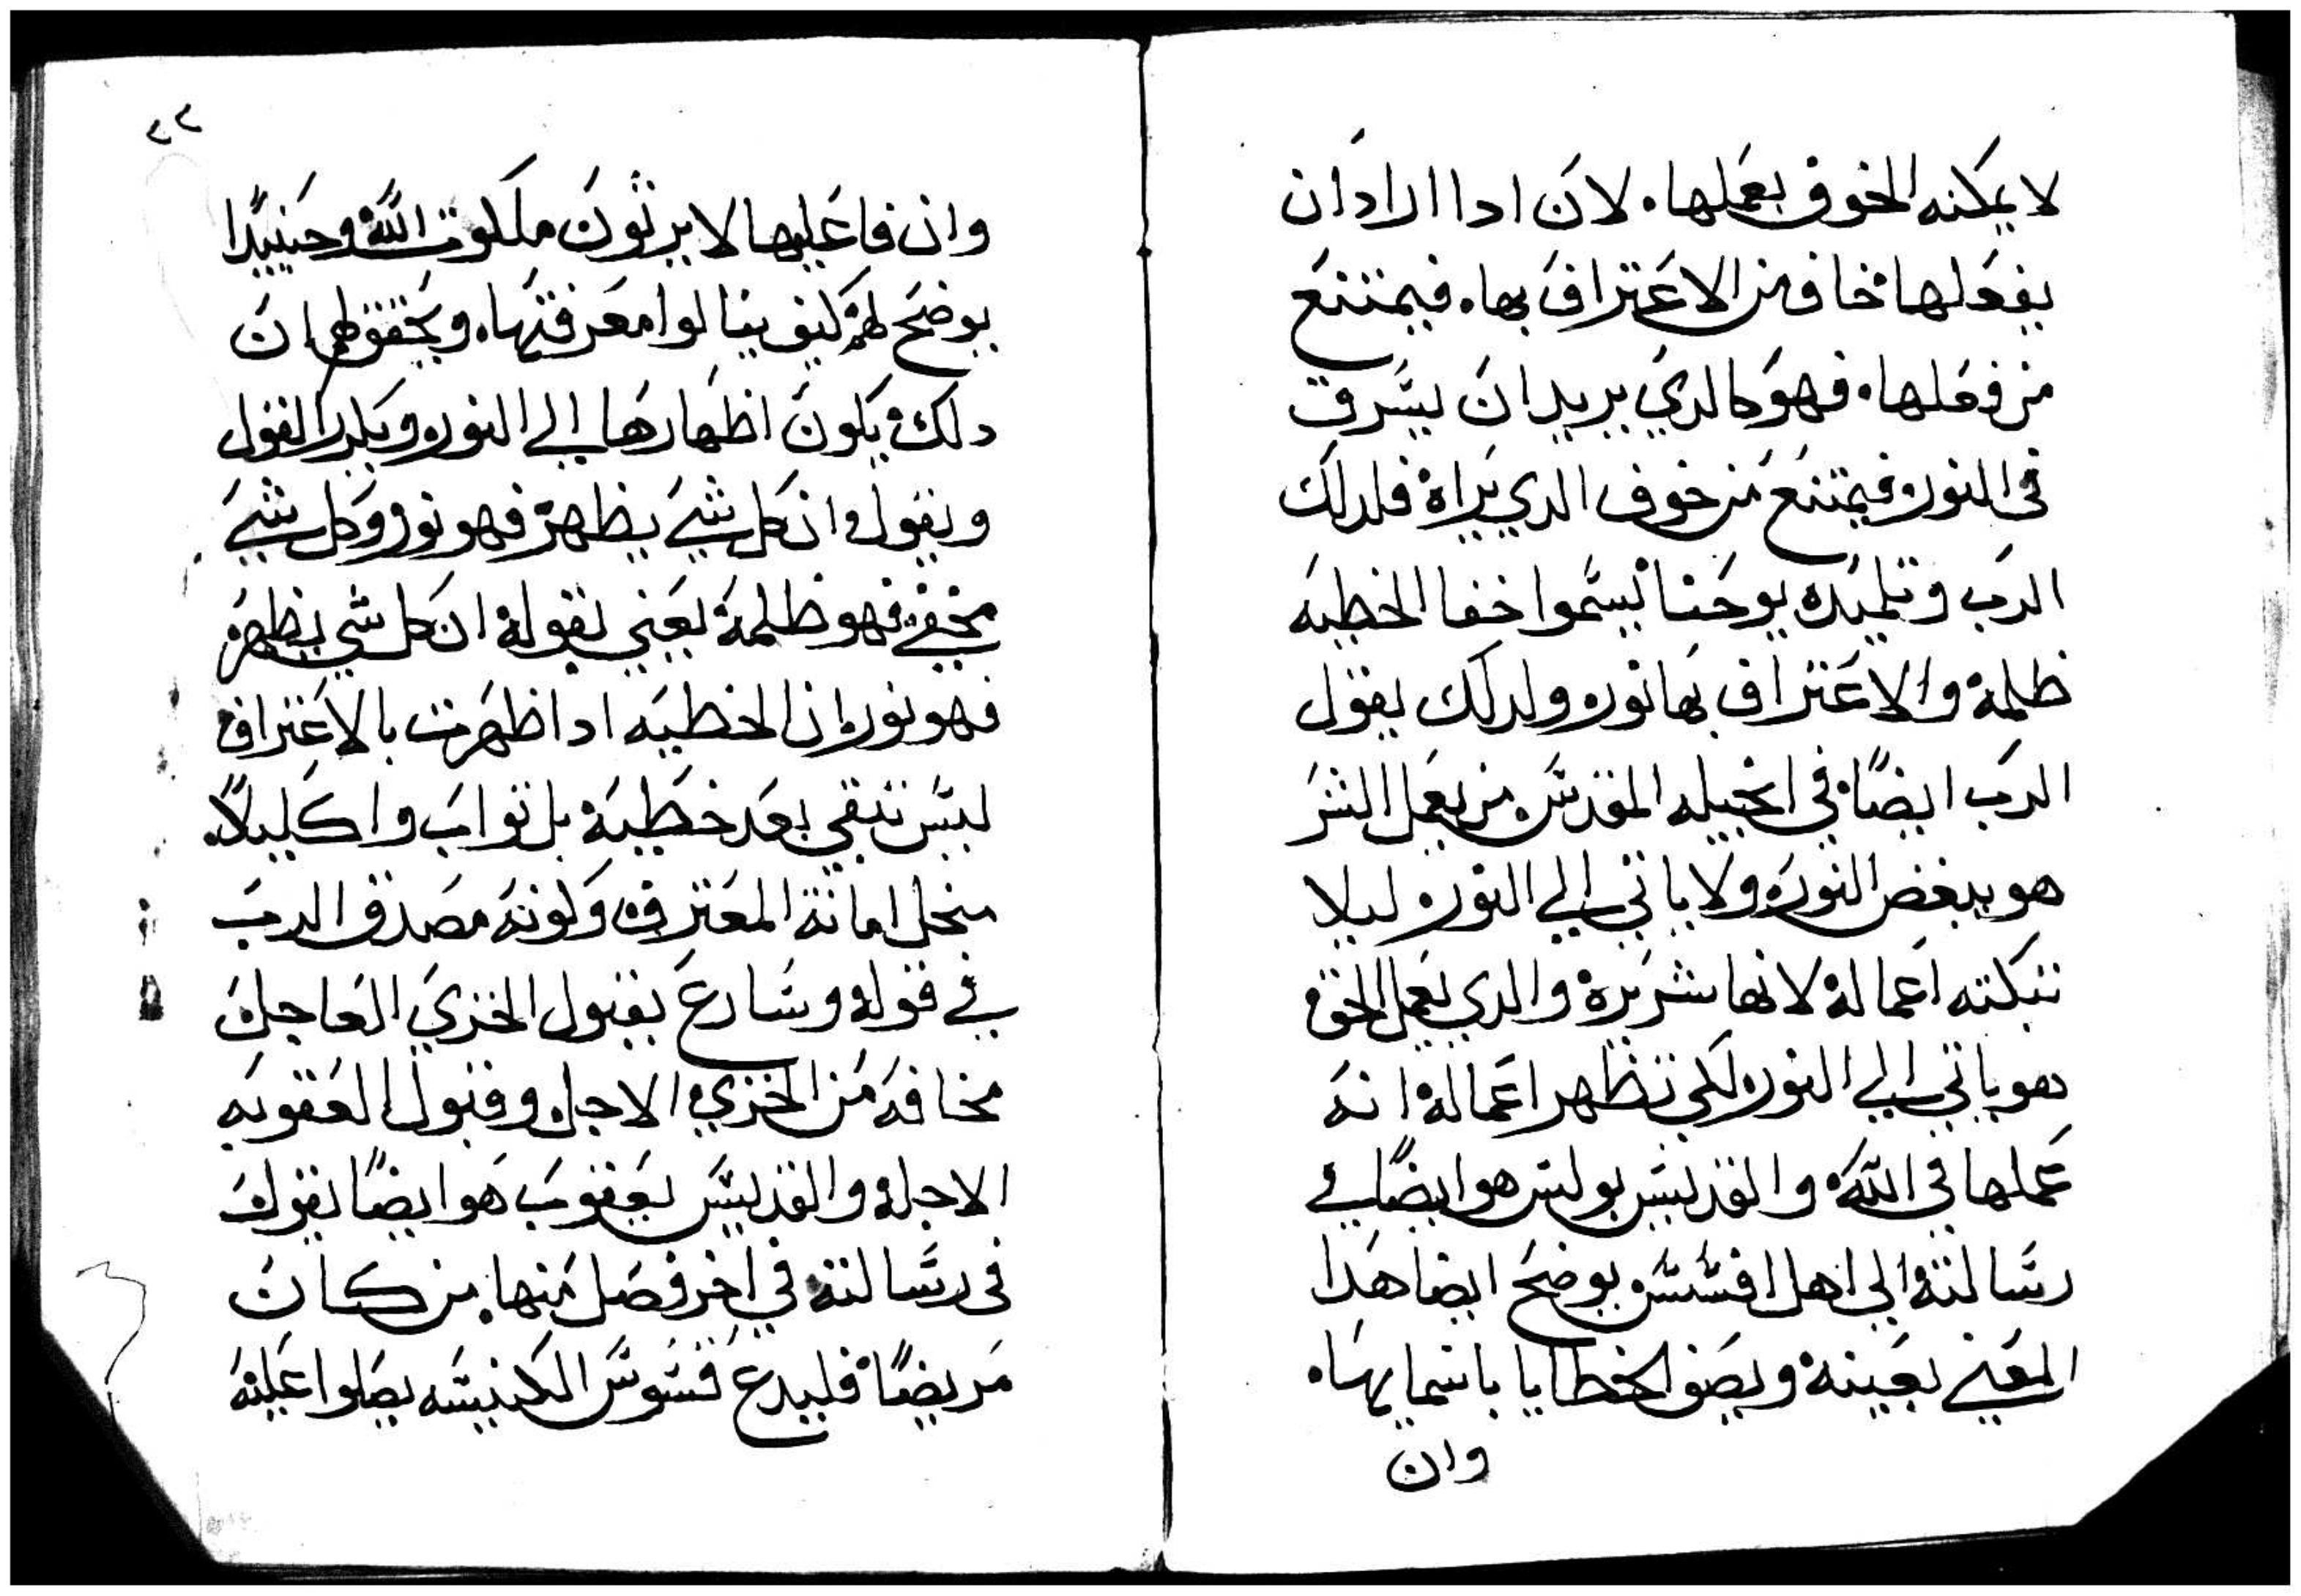 لا يمكنه الخوف بعملها. لان ادا اراد ان
يفعلها خاف من الاعتراف بها. فيمتنع
من فعلها. فهو كالدي يريد ان يسرق
في النور فيمتنع من خوف الدي يراه فلدلك
الرب وتلميده يوحنا ليسموا خفا الخطيه
ظلمة والاعتراف بها نور. ولدلك يقول
الرب ايضًا في انجيله المقدس من يعمل الشر
هو يبغض النور ولا ياتي الي النور ليلا
تبكته اعماله لانها شريرة والدي يعمل الحق
هو ياتي الي النور لكي تظهر اعماله انه
عملها في الله والقديس بولس هو ايضًا في
رسالته الي اهل افسس يوضح ايضا هدا
المعني بعينه ويصف الخطايا باسمايها.
وان
٤٢
وان فاعليها لا يرثون ملكوت الله وحينيدًا
يوضح لهم كيف ينالوا معرفتها. ويحقق لهم ان
دلك يكون اظهارها الي النور ويكرر القول
ويقول ان كل شي يظهر فهو نور وكل شي
مخفي فهو ظلمة يعني بقوله ان كل شي يظهر
فهو نور ان الخطيه ادا ظهرت بالاعتراف
ليس تبقي بعد خطية بل ثواب واكليلاً.
من اجل امانة المعترف وكونه مصدق الرب
في قوله وسارع بقبول الخزي العاجل
مخافة من الخزي الاجل وقبول العقوبه
الاجله والقديس يعقوب هو ايضًا يقول
في رسالته في اخر فصل منها. من كان
مريضًا فليدع قسوس الكنيسه يصلوا عليه